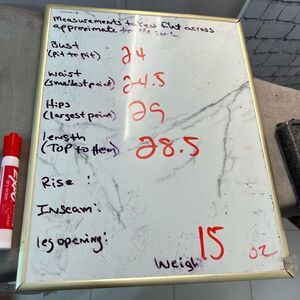 measurements taken flat across
approximate to the inch
Bust 24
(pit to pit)
waist 24.5
(smallest point)
Hips 29
(largest point)
length 28.5
(TOP to Hem)
Rise :
Inseam:
leg opening:
Weigh 15 oz
EXPO